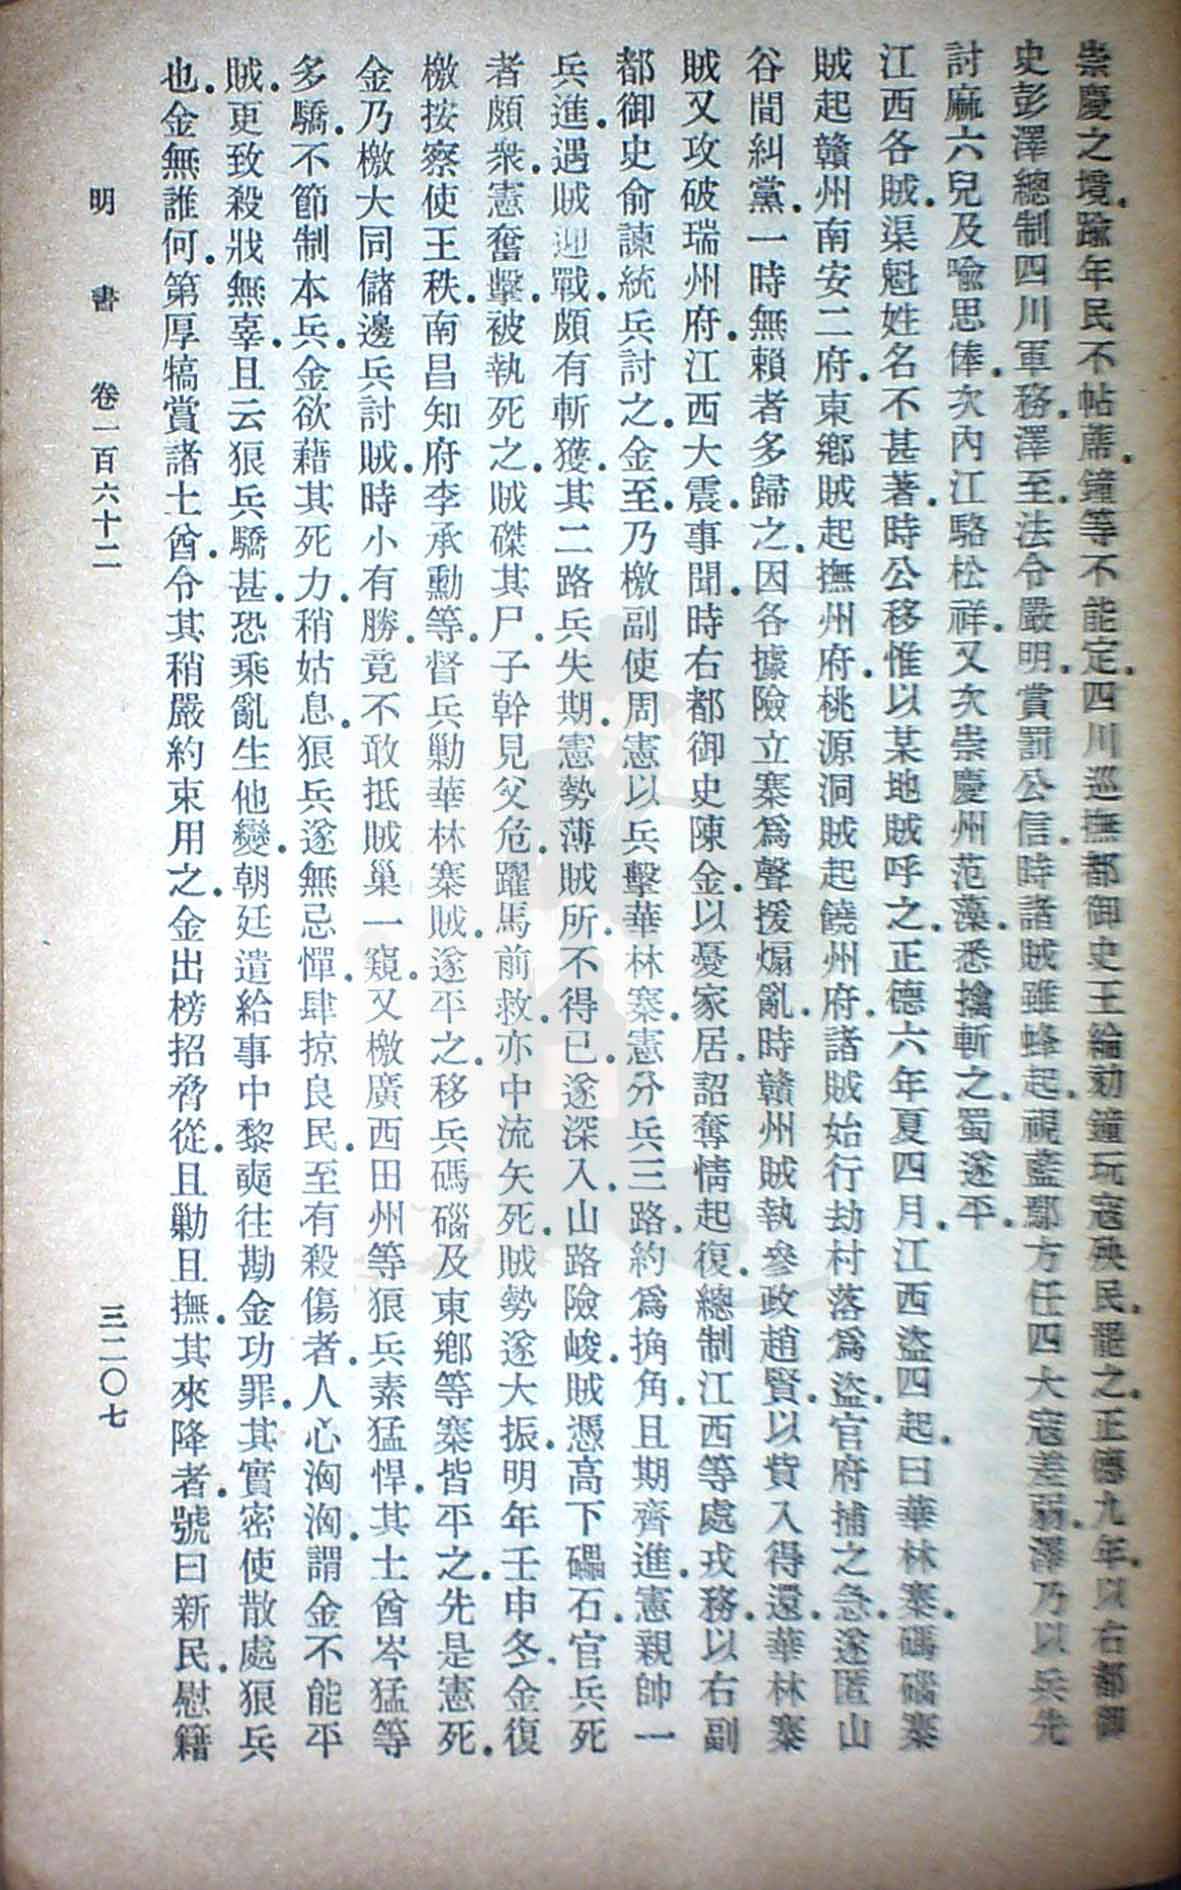 崇慶之境。踰年民不帖席。鐘等不能定。四川巡撫都御史王綸劾鐘玩寇殃民。罷之。正德九年。以右都御
史彭澤總制四川軍務。澤至。法令嚴明。賞罰公信。時諸賊雖蜂起。視藍鄢方任四大寇差弱。澤乃以兵先
討麻六兒及喻思俸。次內江駱松祥。又次崇慶州范藻。悉擒斬之。蜀遂平。
江西各賊。渠魁姓名不甚著。時公移惟以某地賊呼之。正德六年夏四月。江西盜四起。曰華林寨。碼碯寨
賊起贛州南安二府。東鄉賊起撫州府。桃源洞賊起饒州府。諸賊始行劫村落爲盜。官府捕之急。遂匿山
谷間糾黨。一時無賴者多歸之。因各據險立寨爲聲援煽亂。時贛州賊執參政趙賢。以貲入得還。華林寨
賊又攻破瑞州府。江西大震。事聞。時右都御史陳金。以憂家居。詔奪情起復。總制江西等處戎務。以右副
都御史俞諫統兵討之。金至。乃檄副使周憲以兵擊華林寨。憲分兵三路。約爲掎角。且期齊進。憲親帥一
兵進。遇賊迎戰。頗有斬獲。其二路兵失期。憲勢薄。賊所不得已。遂深入。山路險峻。賊憑高下礧石。官兵死
者頗衆。憲奮擊。被執死之。賊磔其尸。子幹見父危。躍馬前救。亦中流矢死。賊勢遂大振。明年壬申冬。金復
檄按察使王秩。南昌知府李承勳等。督兵勦華林寨賊。遂平之。移兵碼碯及東鄉等寨。皆平之。先是憲死。
金乃檄大同儲邊兵討賊。時小有勝。竟不敢抵賊巢一窺。又檄廣西田州等狼兵。素猛悍。其土酋岑猛等
多驕。不節制本兵。金欲藉其死力。稍姑息。狼兵遂無忌憚。肆掠良民。至有殺傷者。人心洶洶。謂金不能平
賊。更致殺戕無辜。且云狼兵驕甚。恐乘亂生他變。朝廷遣給事中黎奭往勘金功罪。其實密使散處狼兵
也。金無誰何。第厚犒賞諸土酋。令其稍嚴約束用之。金出榜招脅從。且勦且撫。其來降者。號曰新民。慰籍
明書 卷一百六十二 三二〇七